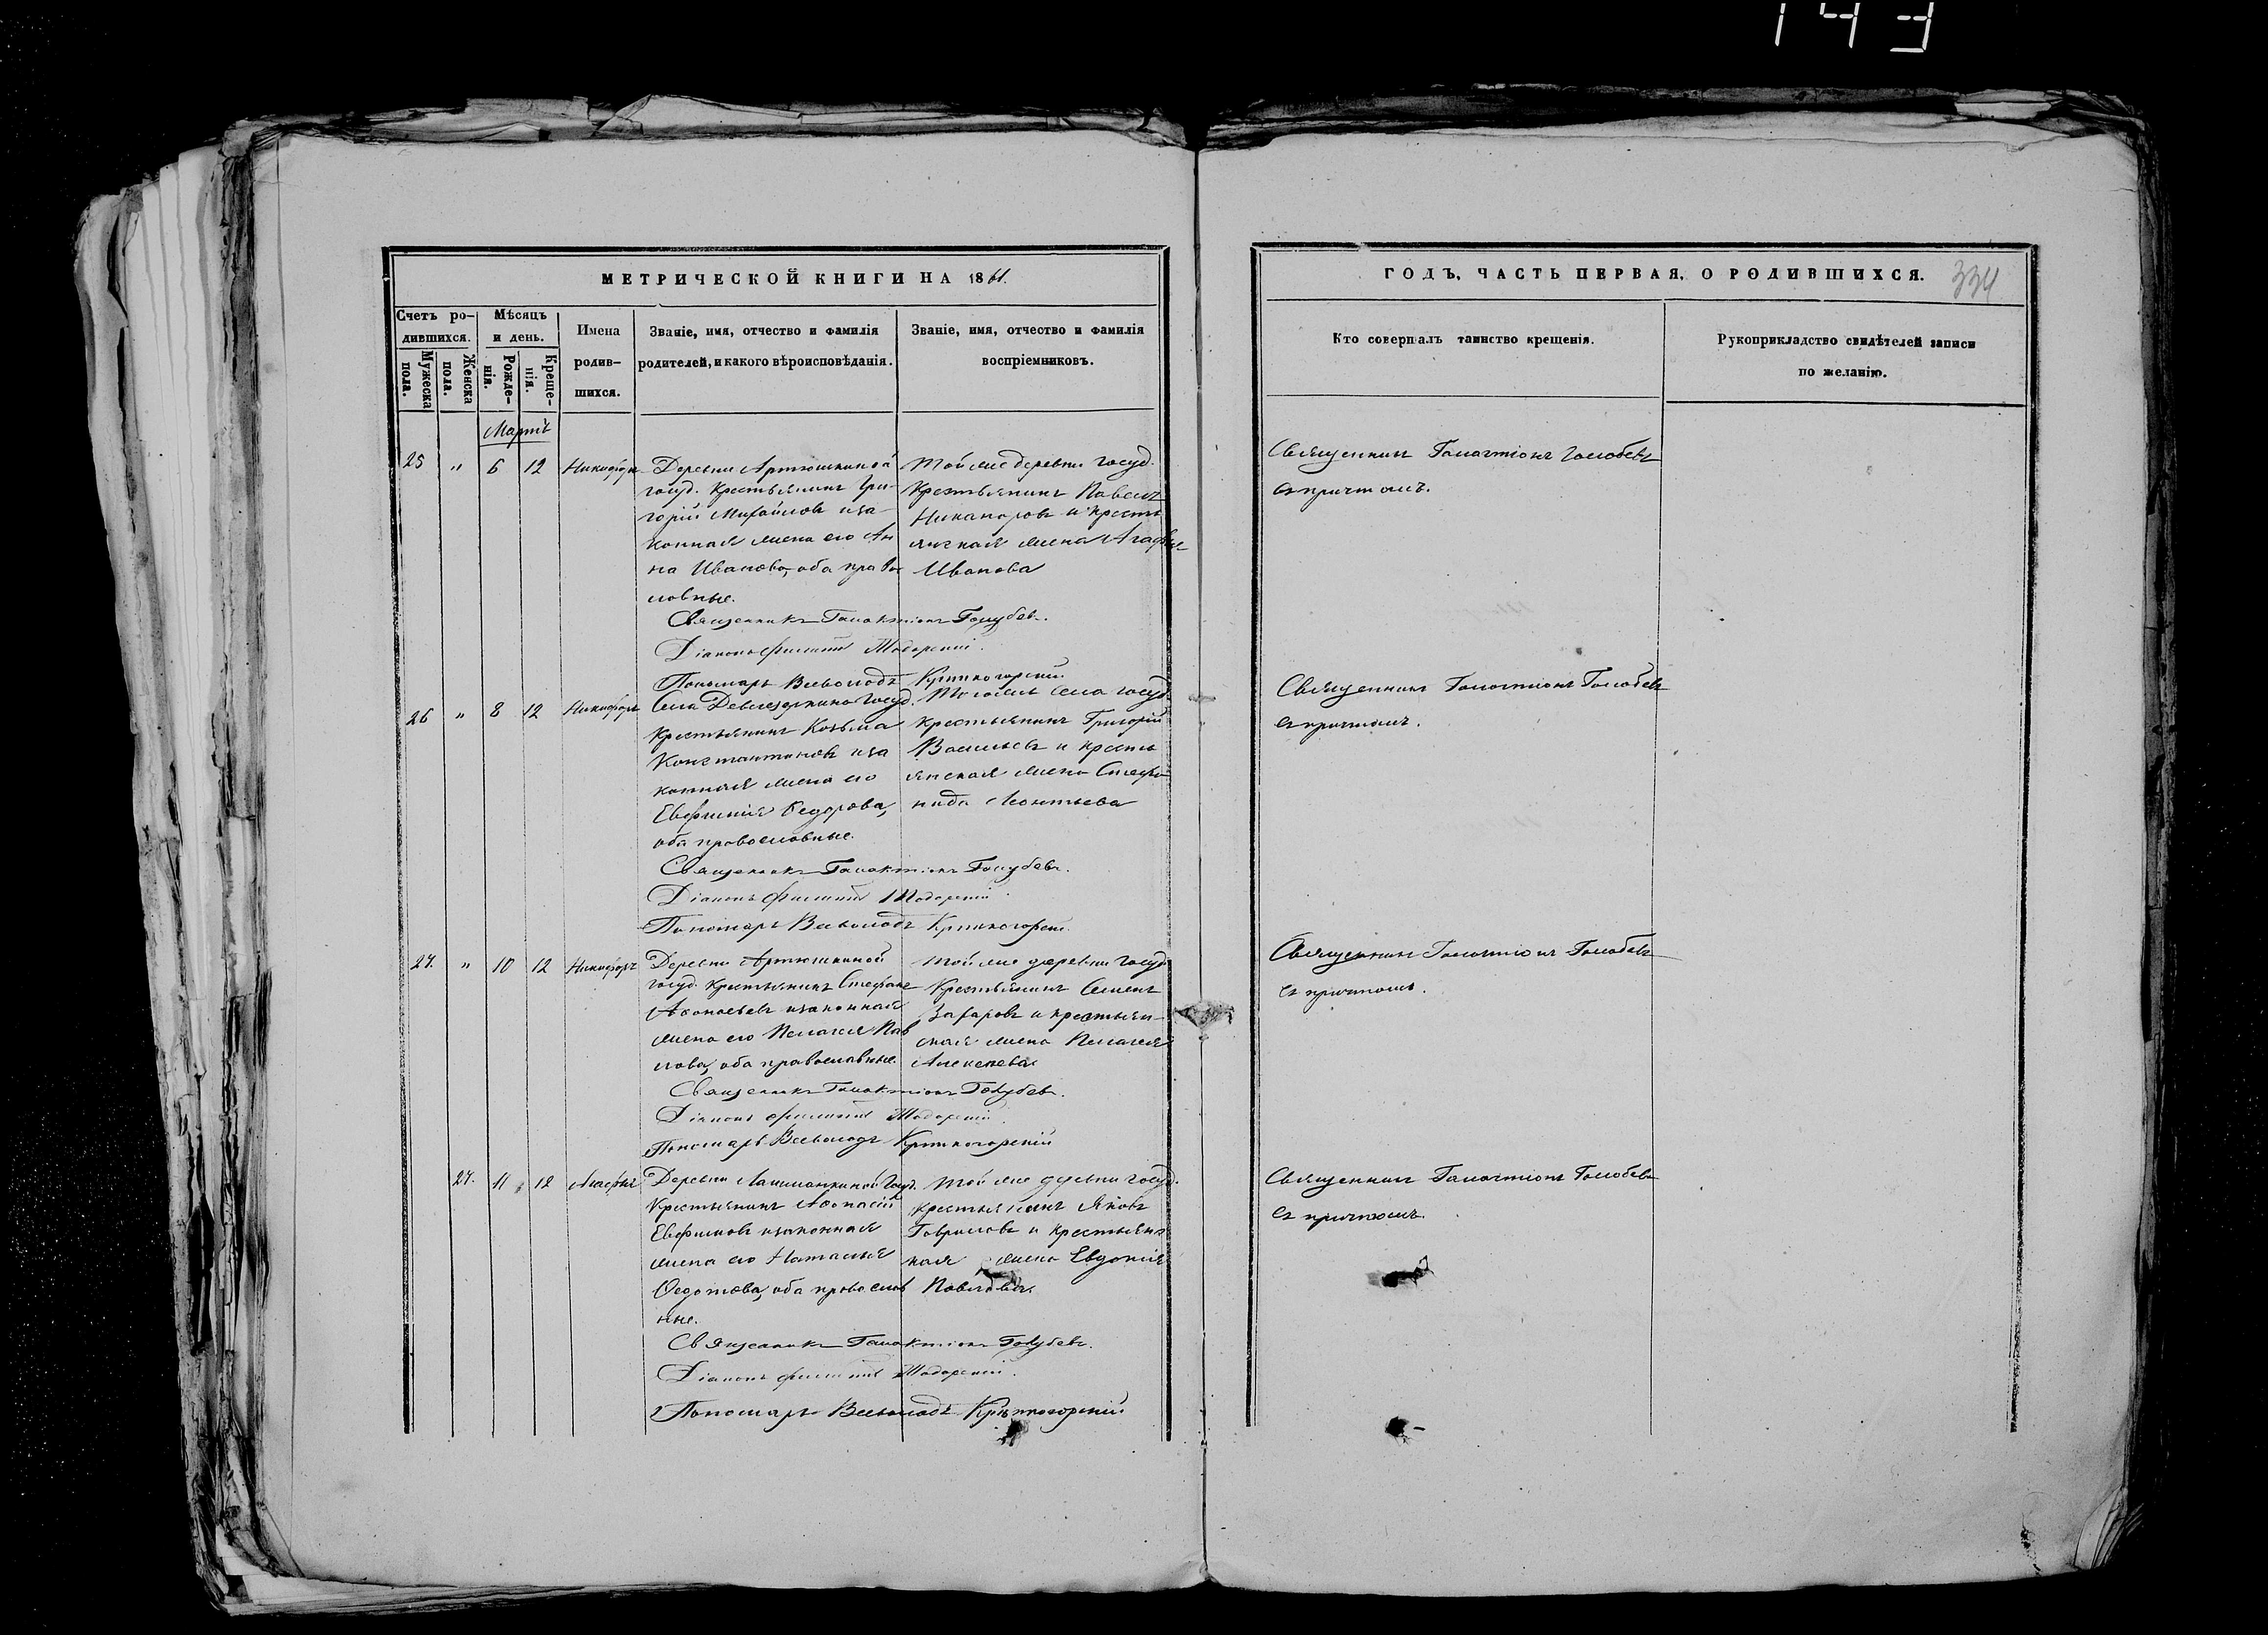 143
МЕТРИЧЕСКОЙ КНИГИ НА 1861.
Счетъ ро-
дившихся.
Мужеска пола.
Женска пола.
Мѣсяцъ
и день.
Рожде-
нія.
Креще-
нія.
Имена
родив-
шихся.
Званіе, имя, отчество и фамилія
родителей, и какого вѣроисповѣданія.
Званіе, имя, отчество и фамилія
воспріемниковъ.
Мартъ
25 " 6 12 Никифоръ
Деревни Артюшкиной
госуд. Крестьянинъ Гри-
горій Михайловъ и за
конная жена его Ан
на Иванова, оба право
славные.
Той же деревни госуд.
Крестьянинъ Павелъ
Никаноровъ и кресть
янская жена Агафья
Иванова
Священникъ Галактіонъ Голубевъ.
Діаконъ Филиппъ
Пономарь Всеволодъ
26 " 8 12 Никифоръ
Села Девлезеркино Госуд.
Крестьянинъ Козьма
Константиновъ и за
конная жена его
Евфимія Ѳедорова,
оба православные.
Того же Села госуд.
крестьянинъ Григорій
Васильевъ и кресть
янская жена Стефа
нида Леонтьева
Священникъ Галактіонъ Голубевъ.
Діаконъ Филиппъ
Пономарь Всеволодъ
27. " 10 12 Никифоръ
Деревни Артюшкиной
госуд. Крестьянинъ Стефанъ
Аѳонасьевъ и законная
жена его Пелагея Пав
лова, оба православные.
Той же деревни госуд.
Крестьянинъ Семенъ
Захаровъ и крестьян-
ская жена Пелагея
Алексеева
Священникъ Галактіонъ Голубевъ.
Діаконъ Филиппъ
Пономарь Всеволодъ
27. 11 12 Агафья
Деревни Госуд.
Крестьянинъ Аѳонасій
Евфимовъ и законная
жена его Наталья
Ѳедотова, оба православ
ные.
Той же деревни госуд.
крестьянинъ Яковъ
Гавриловъ и крестьянс
кая жена Евдокія
Павлова.
Священникъ Галактіонъ Голубевъ.
Діаконъ Филиппъ
Пономарь Всеволодъ
ГОДЪ, ЧАСТЬ ПЕРВАЯ, О РОДИВШИХСЯ.
334
Кто совершалъ таинство крещенія.
Рукоприкладство свидѣтелей записи
по желанію.
Священникъ Галактіонъ Голубевъ
съ причтомъ.
Священникъ Галактіонъ Голубевъ
съ причтомъ.
Священникъ Галактіонъ Голубевъ
съ причтомъ.
Священникъ Галактіонъ Голубевъ
съ причтомъ.